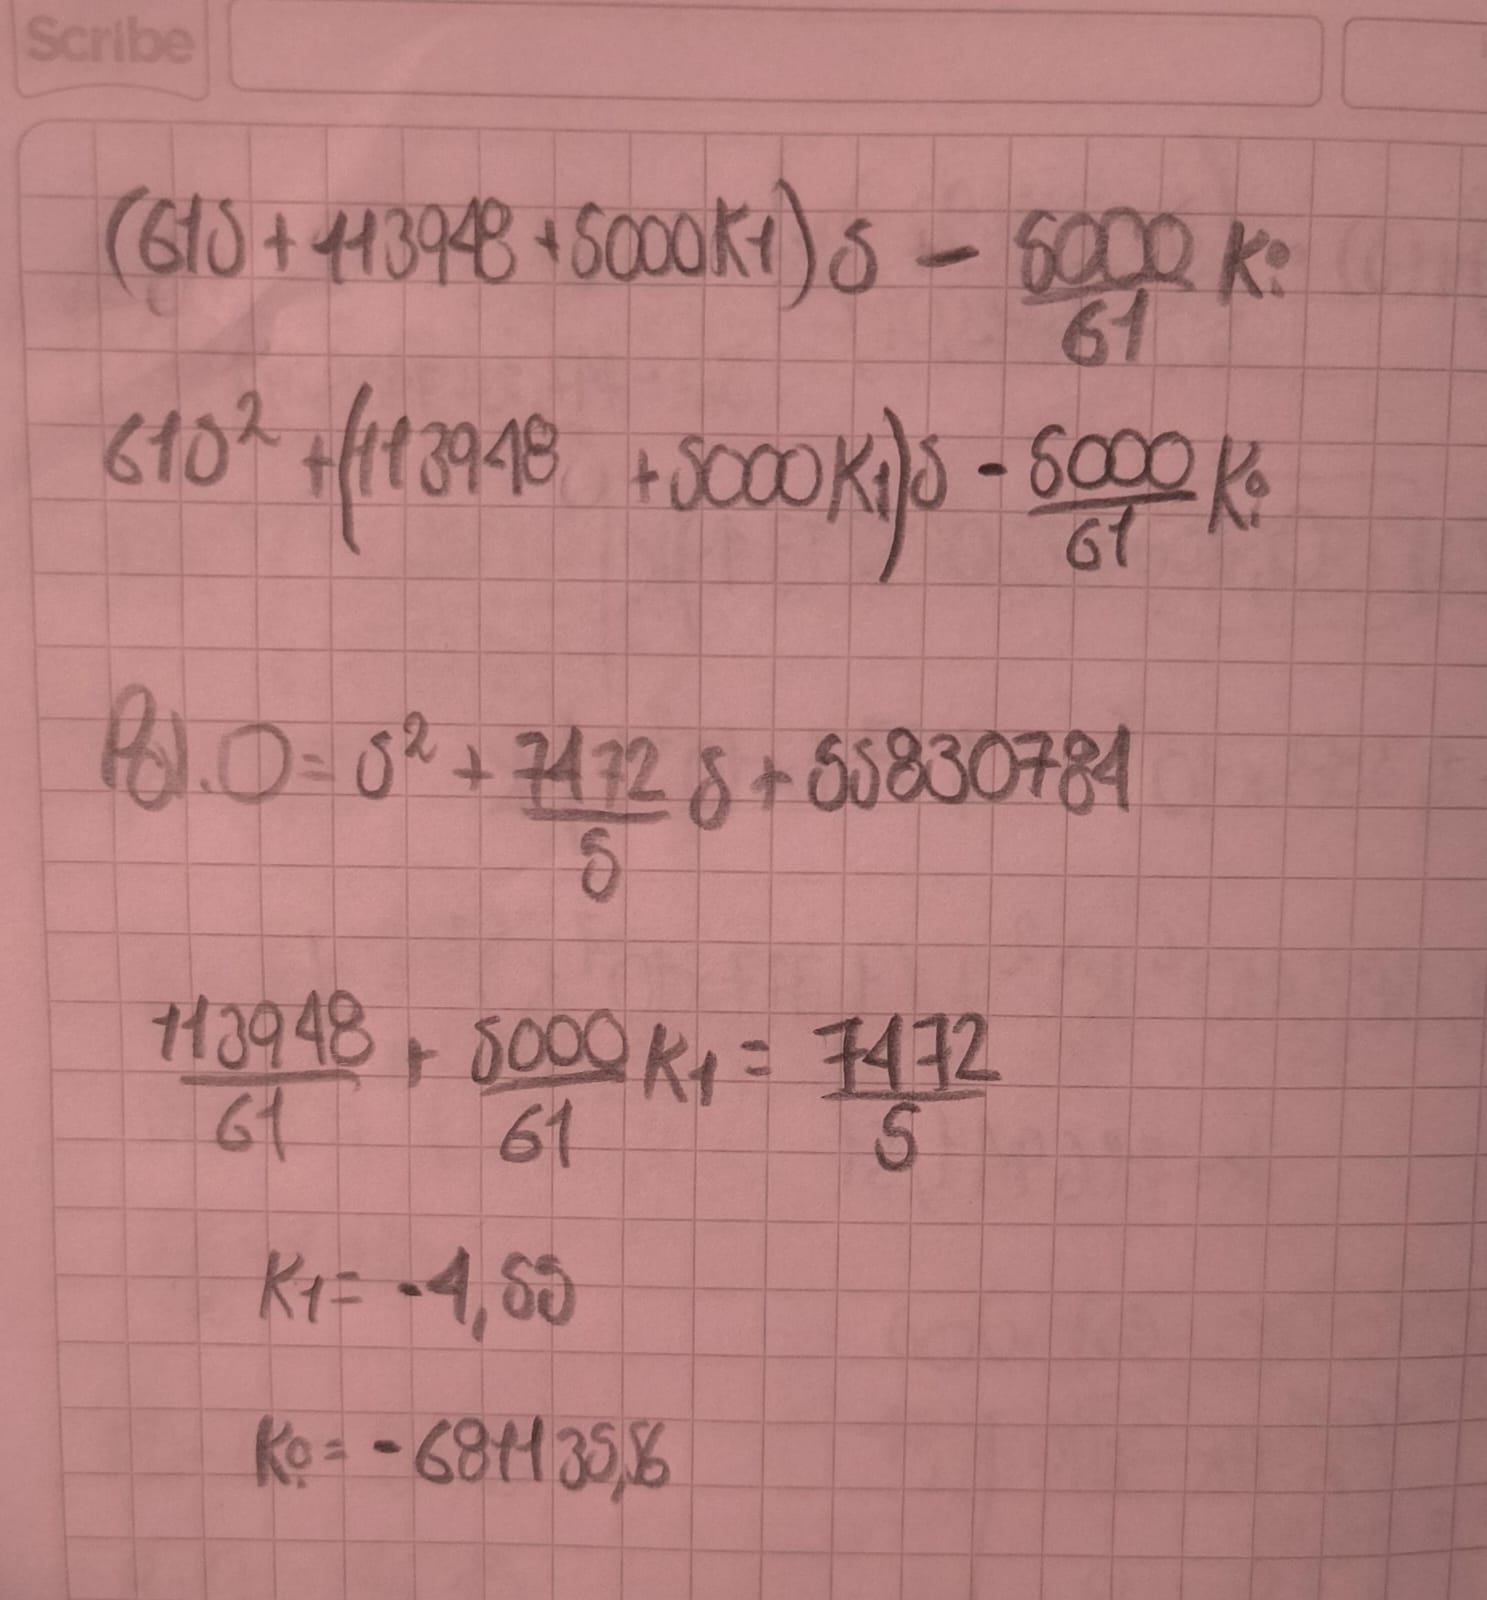 (61s + 113948 + 5000K1)s - 5000/61 Ki
61s² + (113948 + 5000K1)s - 5000/61 Ki
Pol.D = s² + 7472/5 s + 55830784
113948/61 + 5000/61 K1 = 7472/5
K1 = -4,55
Ki = -681135,56